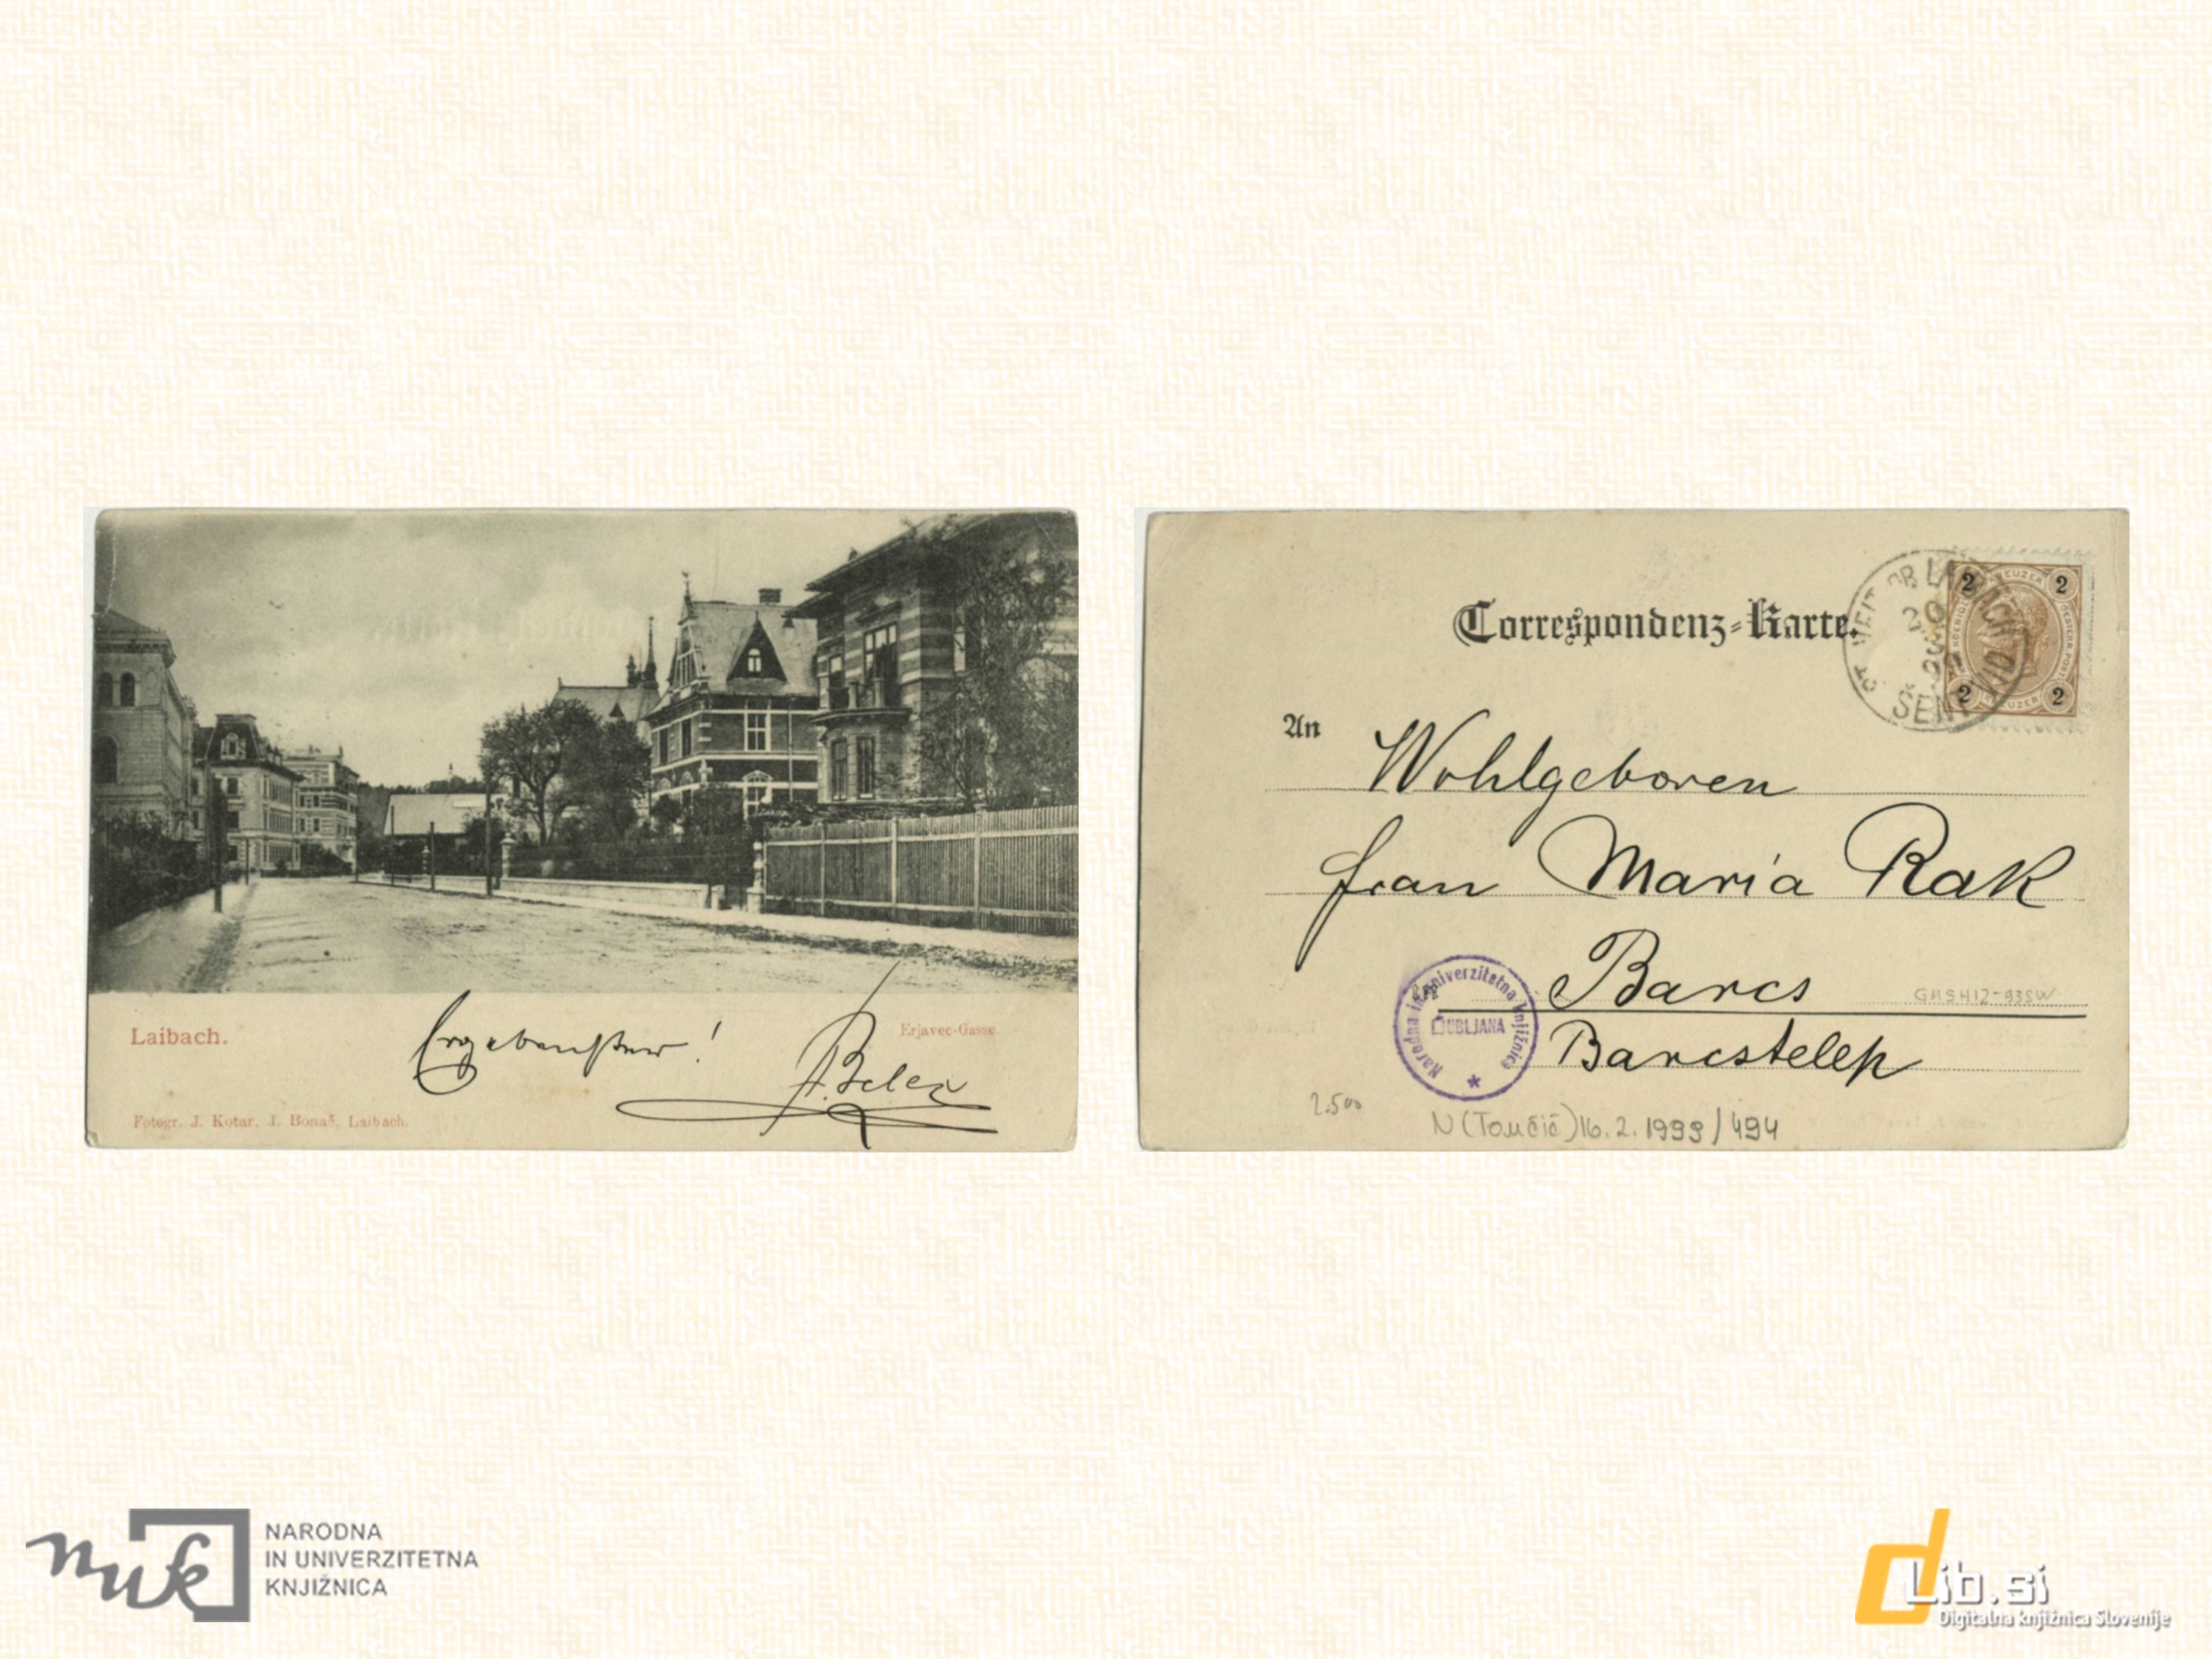 Laibach.
Erjavec-Gasse.
Ergebenster!
Fotogr. J. Kotar, J. Bonač, Laibach.
Correspondenz-Karte.
ST. VEIT OB LAIBACH
20
ŠENT VID
2 2
2 2
KREUZER
An
Wohlgeboren
Frau Maria Rak
Barcs
GMSH12-93SW
Barcstelep
Narodna in univerzitetna knjižnica
LJUBLJANA
2.500
N (Tomčič) 16. 2. 1999/494
nuk
NARODNA
IN UNIVERZITETNA
KNJIŽNICA
dLib.si
Digitalna knjižnica Slovenije